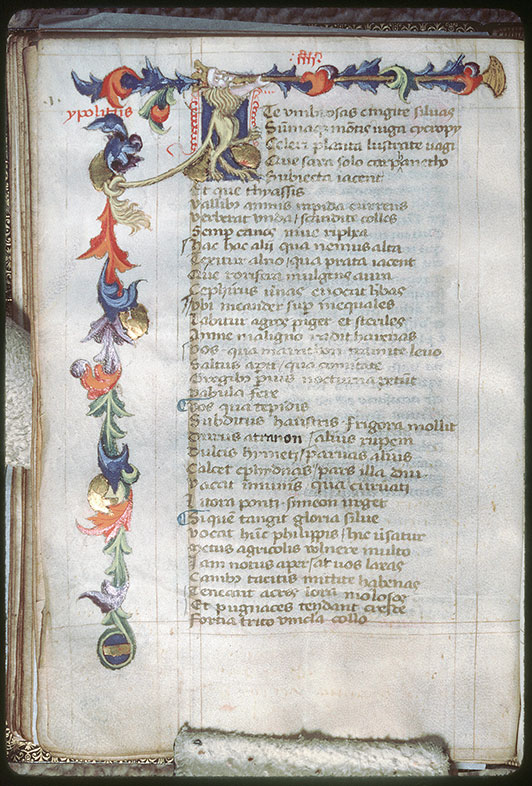 ypolitus
Te vmbrosas cingite siluas
Sumaq3 motis iuga cycropy
Celeri planta lustrate vagi
Que saxa solo carpanethy
Subiecta iacent
Et que thrassis
Vallibus amnis rapida currens
Verberat vnda / scandite colles
Semp canos niue riphea
Hac hac alii qua nemus alta
Texitur alno / qua prata iacent
Que rorifera mulgens aura
Cephirus vnas euocat hbas
Vbi meander sup inequales
Labitur agros piger et steriles
Amne maligno radit harenas
Vos qua marathon tramite leuo
Saltus aperit / qua comitate
Gregibus paruis nocturna petunt
Pabula fete
Vos qua tepidis
Subditus haustris frigora mollit
Durus atranon / alius rupem
Dulcis hymeti / paruas alius
Calcet ephydnas / pars illa diu
Vacat imunis qua curuati
Litora ponti simeon vrget
Si quem tangit gloria silue
Vocat hunc philippis / hic usatur
Metus agricolis vulnere multo
Iam notus aper / at vos laxas
Canibus tacitis mittite habenas
Teneant acres lora molosos
Et pugnaces tendant cresse
Fortia trito vincla collo